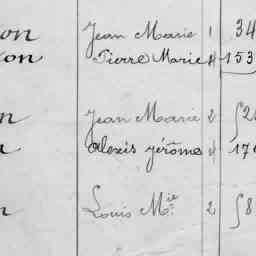 Jean Marie 1 34
Pierre Marie 4 153
Jean Marie 2
Alexis Jérôme 4 17
Louis Mie 2 58